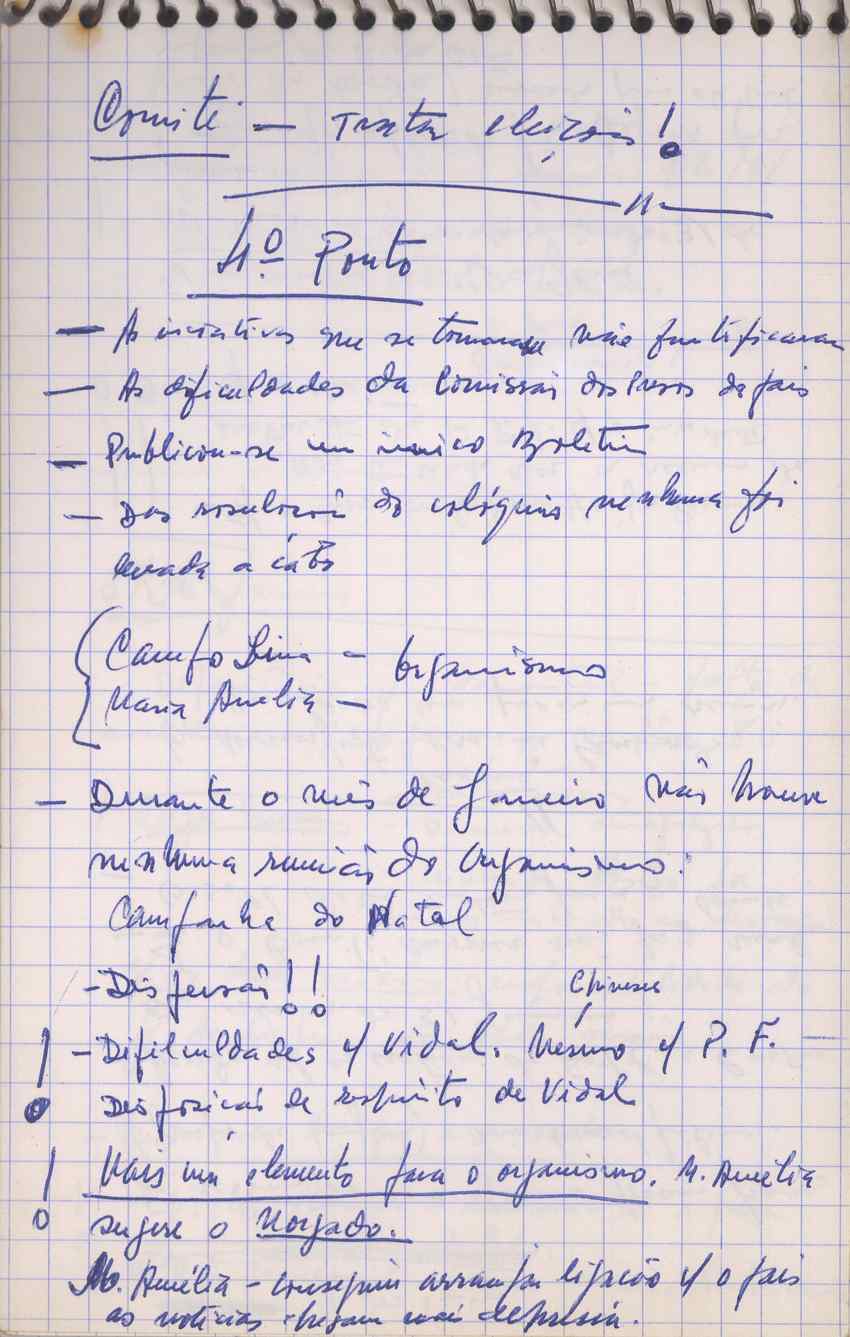 Comité — Tratar eleições!
4º Ponto
— As iniciativas que se tomaram não frutificaram
— As dificuldades da Comissão dos Presos do país
— Publicou-se um único Boletim
— Das resoluções do colóquio nenhuma foi
levada a cabo
Campos Lima — Organismo
Maria Amélia —
— Durante o mês de Janeiro não houve
nenhuma reunião do organismo.
Campanha do Natal
- Dispersão!!
Chineses
! - Dificuldades c/ Vidal. Mesmo c/ P. F. —
Disposição de espírito de Vidal
! Mais um elemento para o organismo. M. Amélia
sugere o Morgado.
M. Amélia - conseguir arranjar ligação c/ o país
as notícias chegam mais depressa.